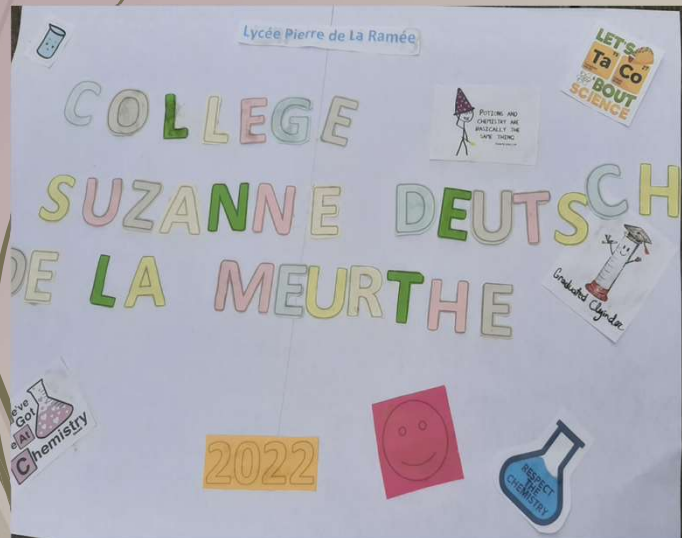 Lycée Pierre de La Ramée
LET'S
Ta Co
'BOUT
SCIENCE
COLLEGE
POTIONS AND
CHEMISTRY ARE
BASICALLY THE
SAME THING
SUZANNE DEUTSCH
DE LA MEURTHE
Graduated Clyinder
We've
Got
Chemistry
2022
RESPECT
THE
CHEMISTRY